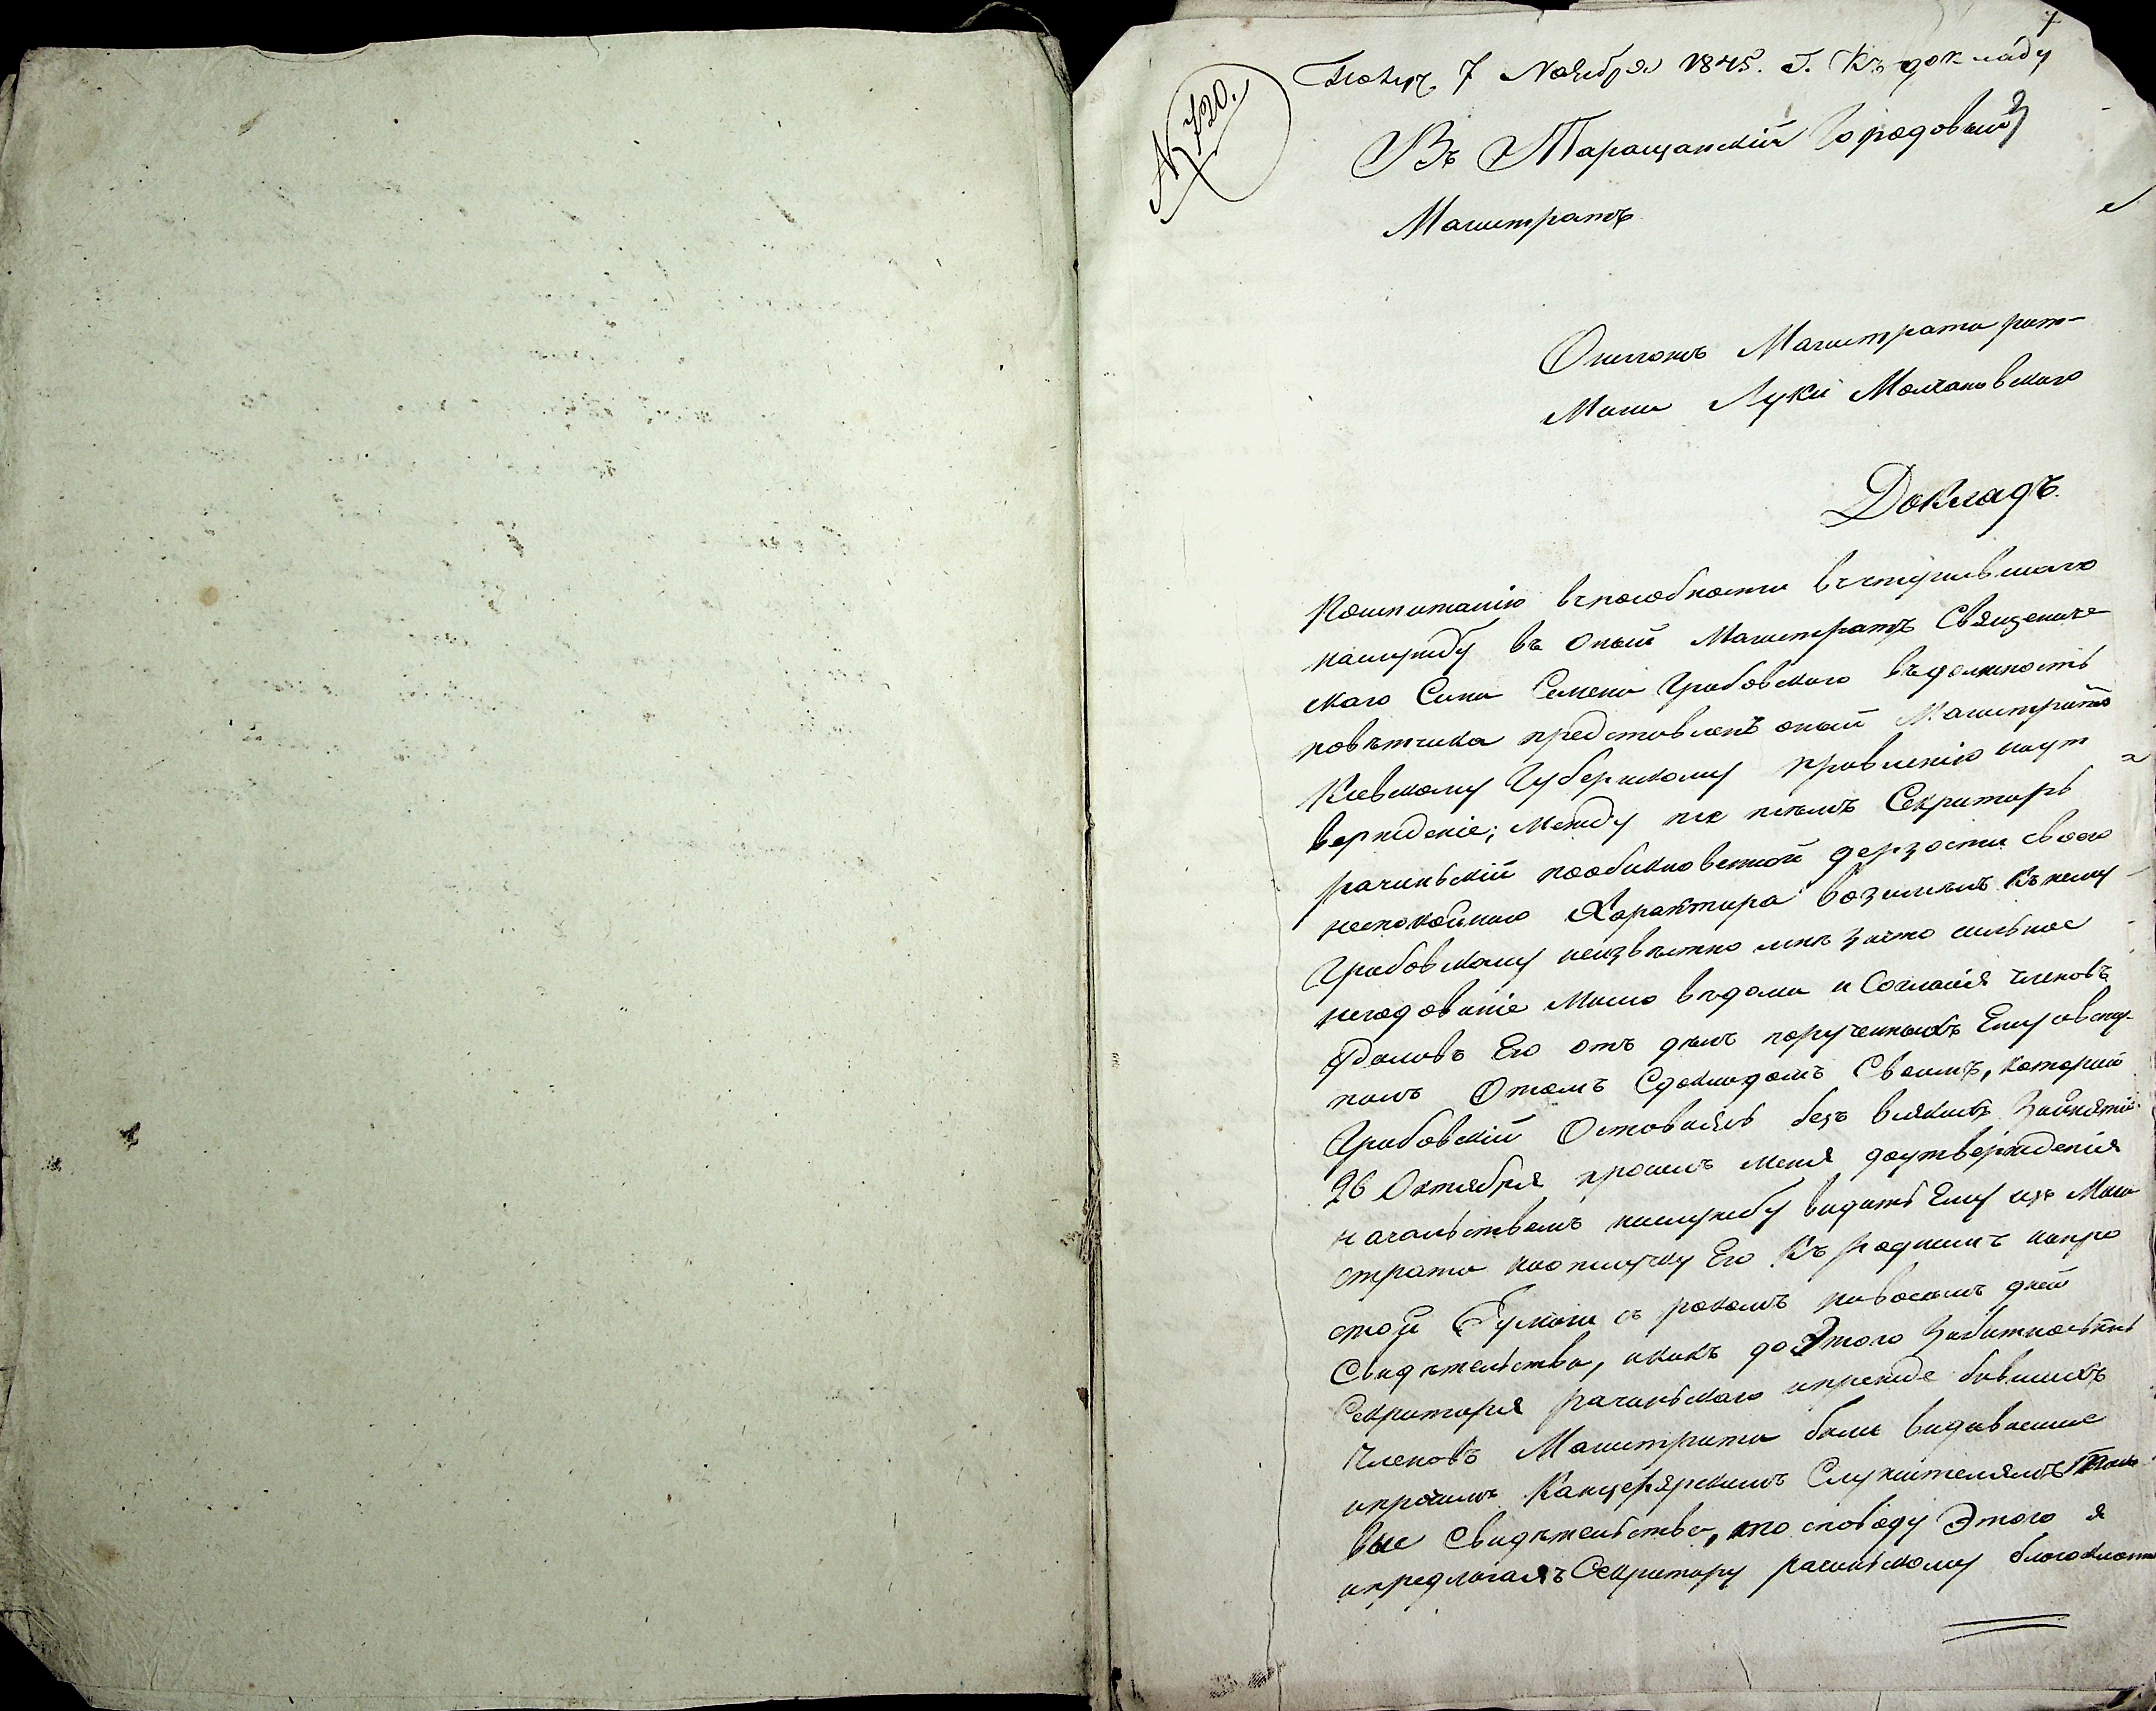 1
№ 720.
7 Ноября 1845. г. Къ докладу
Въ Таращанскій Городовый
Магистратъ
Онагожъ Магистрата рат-
мана Луки Молчановскаго
Докладъ.
Поиспитанію вспособности вступившаго
наслужбу въ оный Магистратъ Священиче
скаго Сина Семена Грабовскаго въдолжность
повытчика представленъ оный Магистратъ
Кіевскому Губернскому правленію наут
вержденіе; между тѣмъ Секритарь
рачиньскій пообикновенной дерзости своего
неспокойнаго Характира возимѣлъ къ нему
Грабовскому неизвѣстно мнѣ зачто сильное
негодованіе мимо вѣдома и Согласія членовъ
Удаливъ Его отъ дѣлъ порученныхъ Ему овсту-
пилъ Отомъ Сдокладомъ Своимъ, которий
Грабовскій Оставаясь безъ всякихъ Занятій
26 Октября просилъ меня доутвержденія
начальствомъ наслужбу видать Ему изъ Маги
страта наотлучку Его Къ роднимъ напро
стой Бумаги съ рокомъ навосемъ дней
Свидѣтельства, икакъ до Этого Забитности
Секритаря рачиньскаго ипрежде бившихъ
Членовъ Магистрата били видаваемие
ипрочимъ Канцерярскимъ Служителямъ Тако
вые Свидѣтельства, то споводу Этого я
ипредлагалъ Секритару рачиньскому